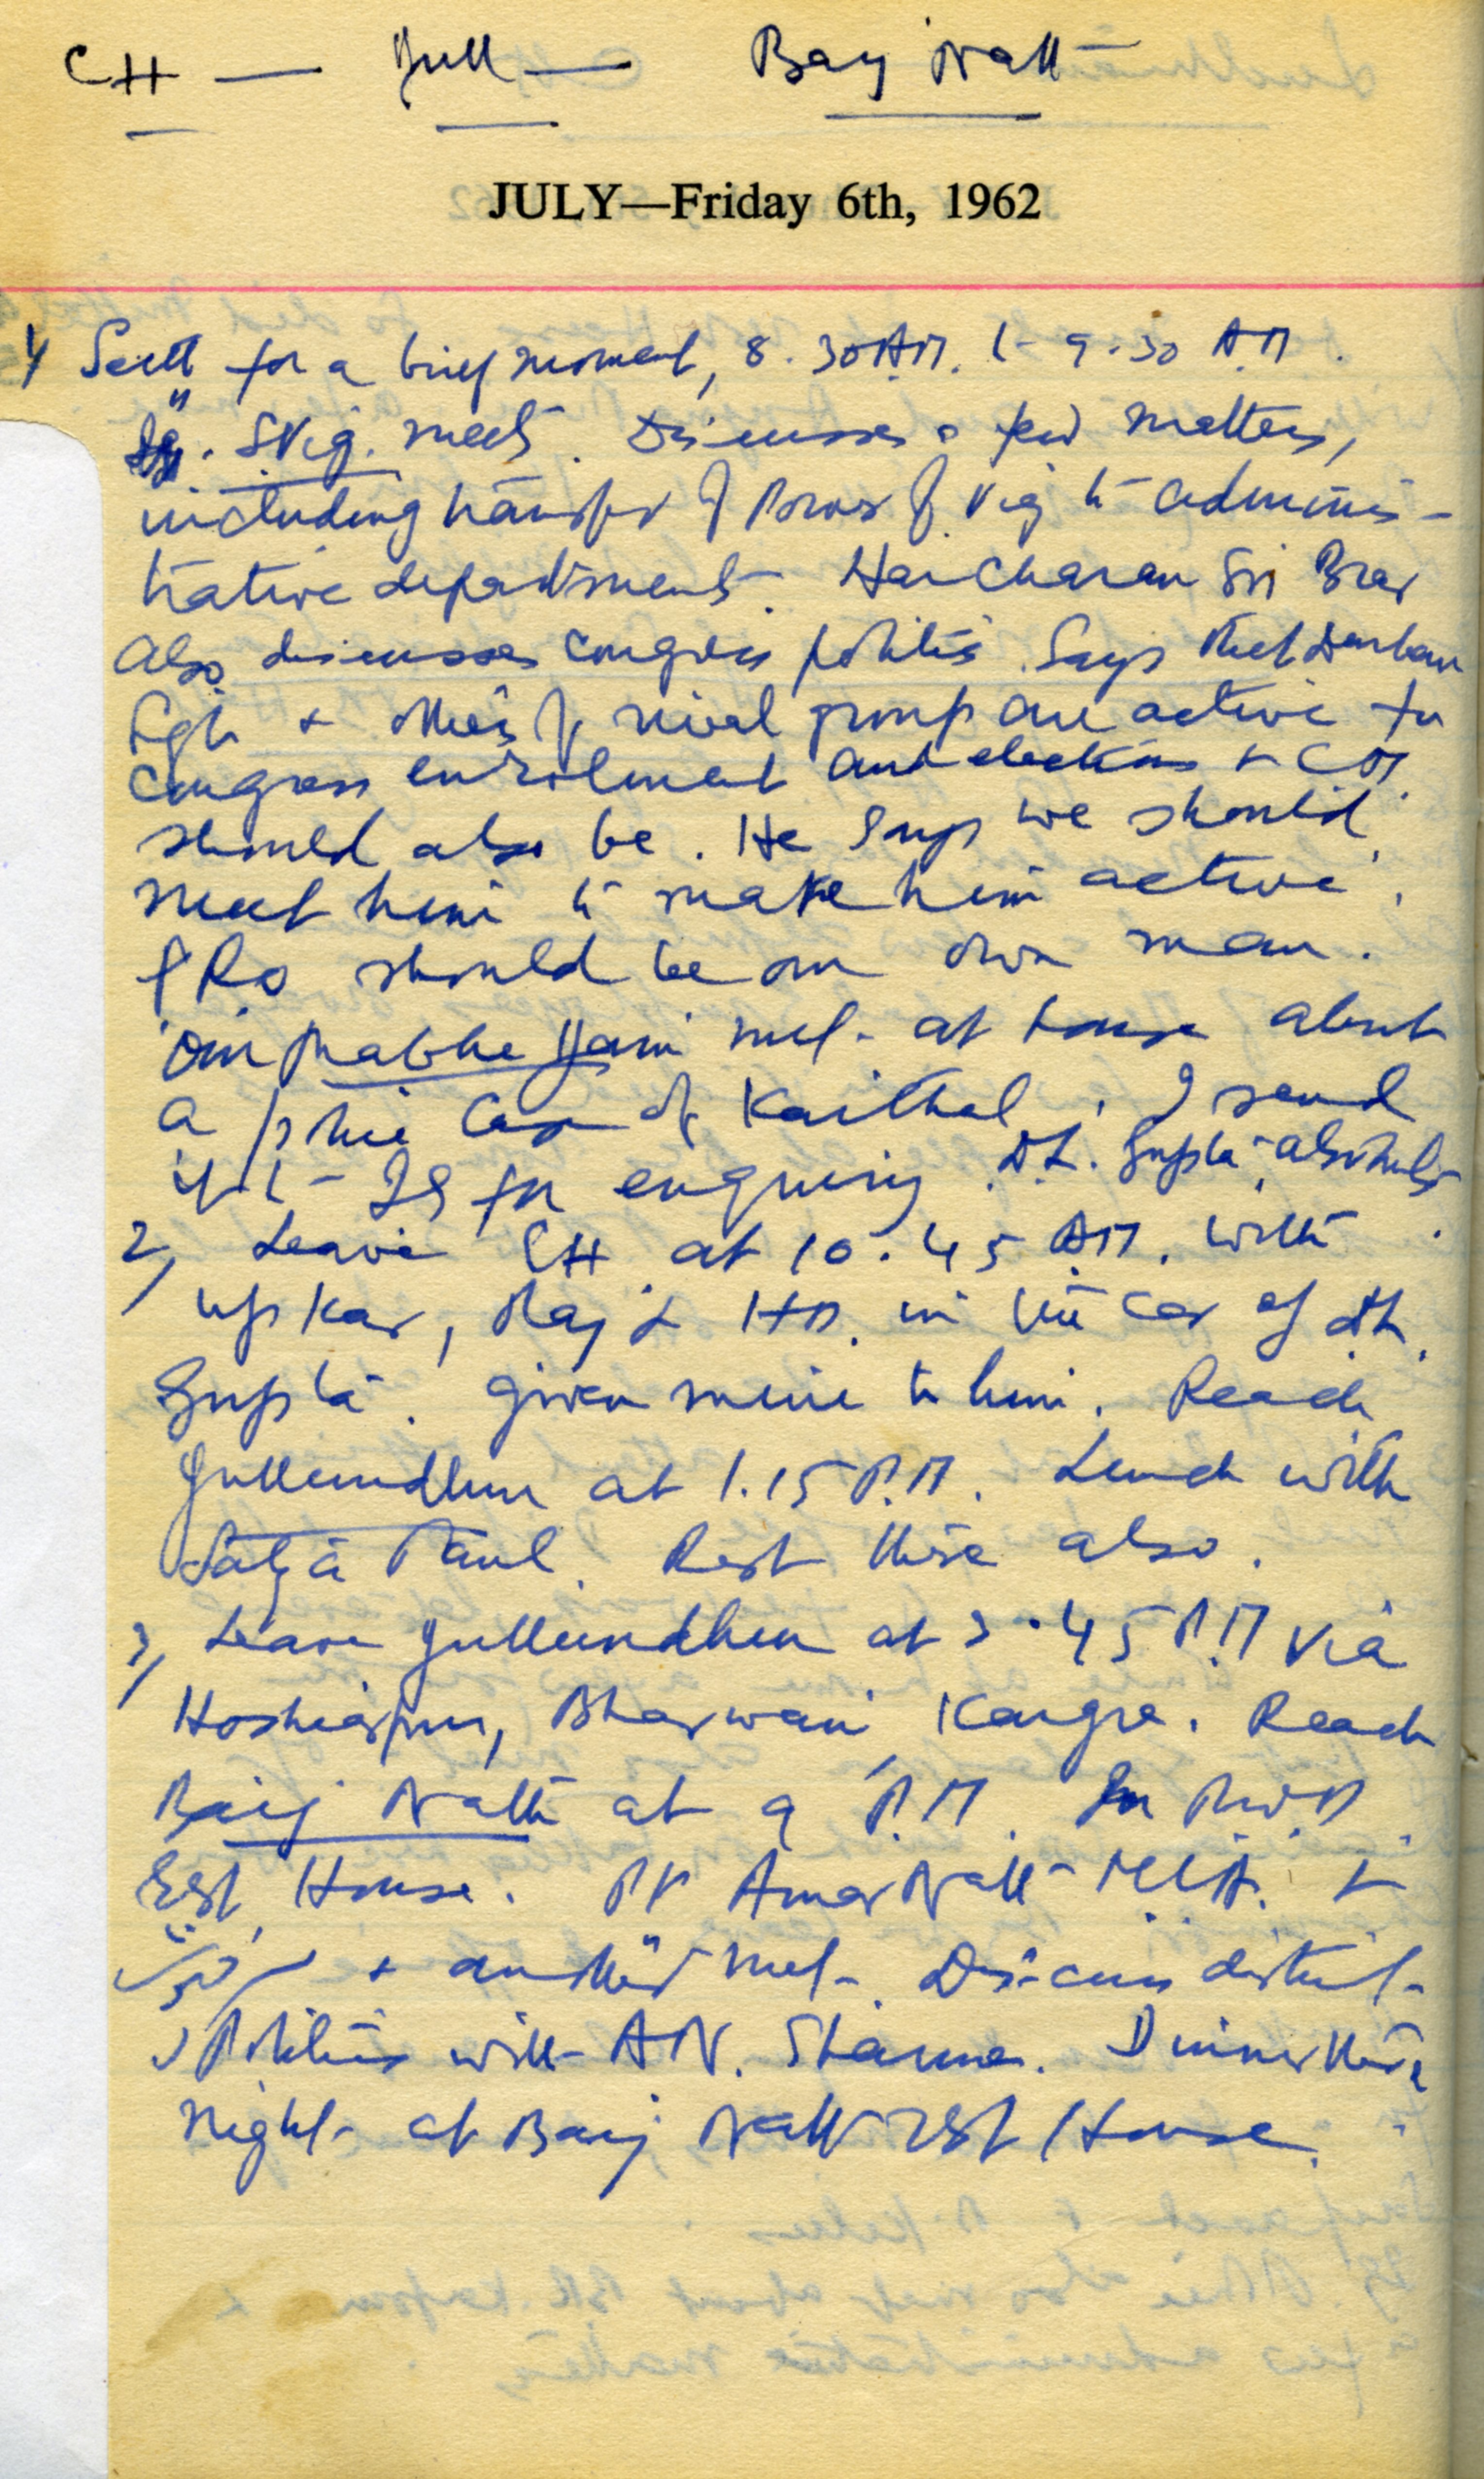 CH — Jull — Baij Nath
JULY—Friday 6th, 1962
1/ Sectt for a brief moment, 8.30 A.M. to 9.30 A.M.
S Vig. meets. Discusses a few matters,
including transfer of Powers of Vig to adminis-
trative departments. Har Charan Sri Brar
also discusses congress politics. Says that Darbara
Sgh + others of rival group are active for
Congress enrolment and elections +
should also be. He says we should
meet him to make him active.
PRO should be our own man.
Om Prabha Jain met at house about
a case of Kaithal. I send
it to IG for enquiry. D.L. Gupta also met
2/ Leave CH at 10.45 A.M. with
Upkar, Raj & HD. in the car of DL.
Gupta. given mine to him. Reach
Jullundhur at 1.15 P.M. Lunch with
Satya Paul. Rest there also.
3/ Leave Jullundhur at 3.45 P.M via
Hoshiarpur, Bharwain Kangra. Reach
Baij Nath at 9 P.M. In P.W.D.
Rest House. Pt Amar Nath MLA. +
+ another met. Discuss district
Politics with A.N. Sharma. Dinner there
Night at Baij Nath Rest House.